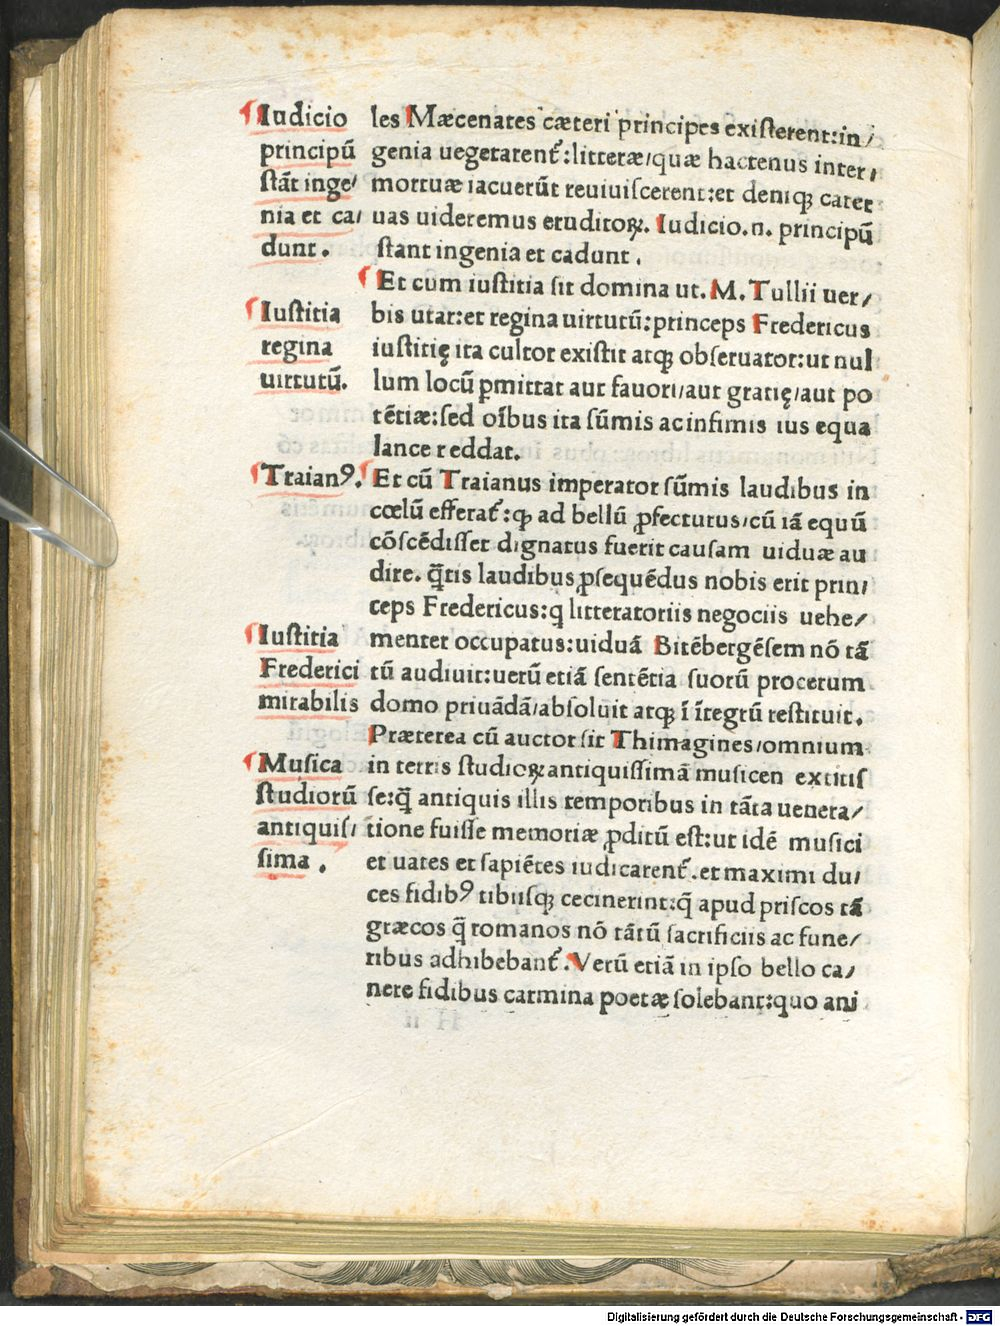 ¶Iudicio
principū
stāt inge/
nia et ca/
dunt.
les Mæcenates cæteri principes existerent:in/
genia uegetarent᷑:litteræ/quæ hactenus inter/
mortuæ iacuerūt reuiuiscerent:et deniqꝫ cater
uas uideremus eruditoꝝ. Iudicio.n. principū
stant ingenia et cadunt.
¶Et cum iustitia sit domina ut. M. Tullii uer/
¶Iustitia
regina
uirtutū.
bis utar:et regina uirtutū:princeps Fredericus
iustitię ita cultor existit atqꝫ obseruator:ut nul
lum locū ꝑmittat aut fauori/aut gratię/aut po
tētiæ:sed oībus ita sūmis ac infimis ius equa
lance reddat.
¶Traianꝰ.
¶Et cū Traianus imperator sūmis laudibus in
cœlū efferat᷑:qꝫ ad bellū ꝓfecturus/cū iā equū
cōscēdisset dignatus fuerit causam uiduæ au
dire. q̄tis laudibus ꝓsequēdus nobis erit prin/
ceps Fredericus:q litteratoriis negociis uehe/
¶Iustitia
Frederici
mirabilis
menter occupatus:uiduā Bitēbergēsem nō tā
tū audiuit:uerū etiā sentētia suorū procerum
domo priuādā/absoluit atqꝫ ī ītegrū restituit.
Præterea cū auctor sit Thimagines/omnium
¶Musica
studiorū
antiquis/
sima.
in terris studioꝝ antiquissimā musicen extitis
se:q̄ antiquis illis temporibus in tāta uenera/
tione fuisse memoriæ ꝓditū est:ut idē musici
et uates et sapiētes iudicarent᷑.et maximi du/
ces fidibꝰ tibiisqꝫ cecinerint:q̄ apud priscos tā
græcos q̄ romanos nō tātū sacrificiis ac fune/
ribus adhibebant᷑.Verū etiā in ipso bello ca/
nere fidibus carmina poetæ solebant:quo ani
Digitalisierung gefördert durch die Deutsche Forschungsgemeinschaft - DFG